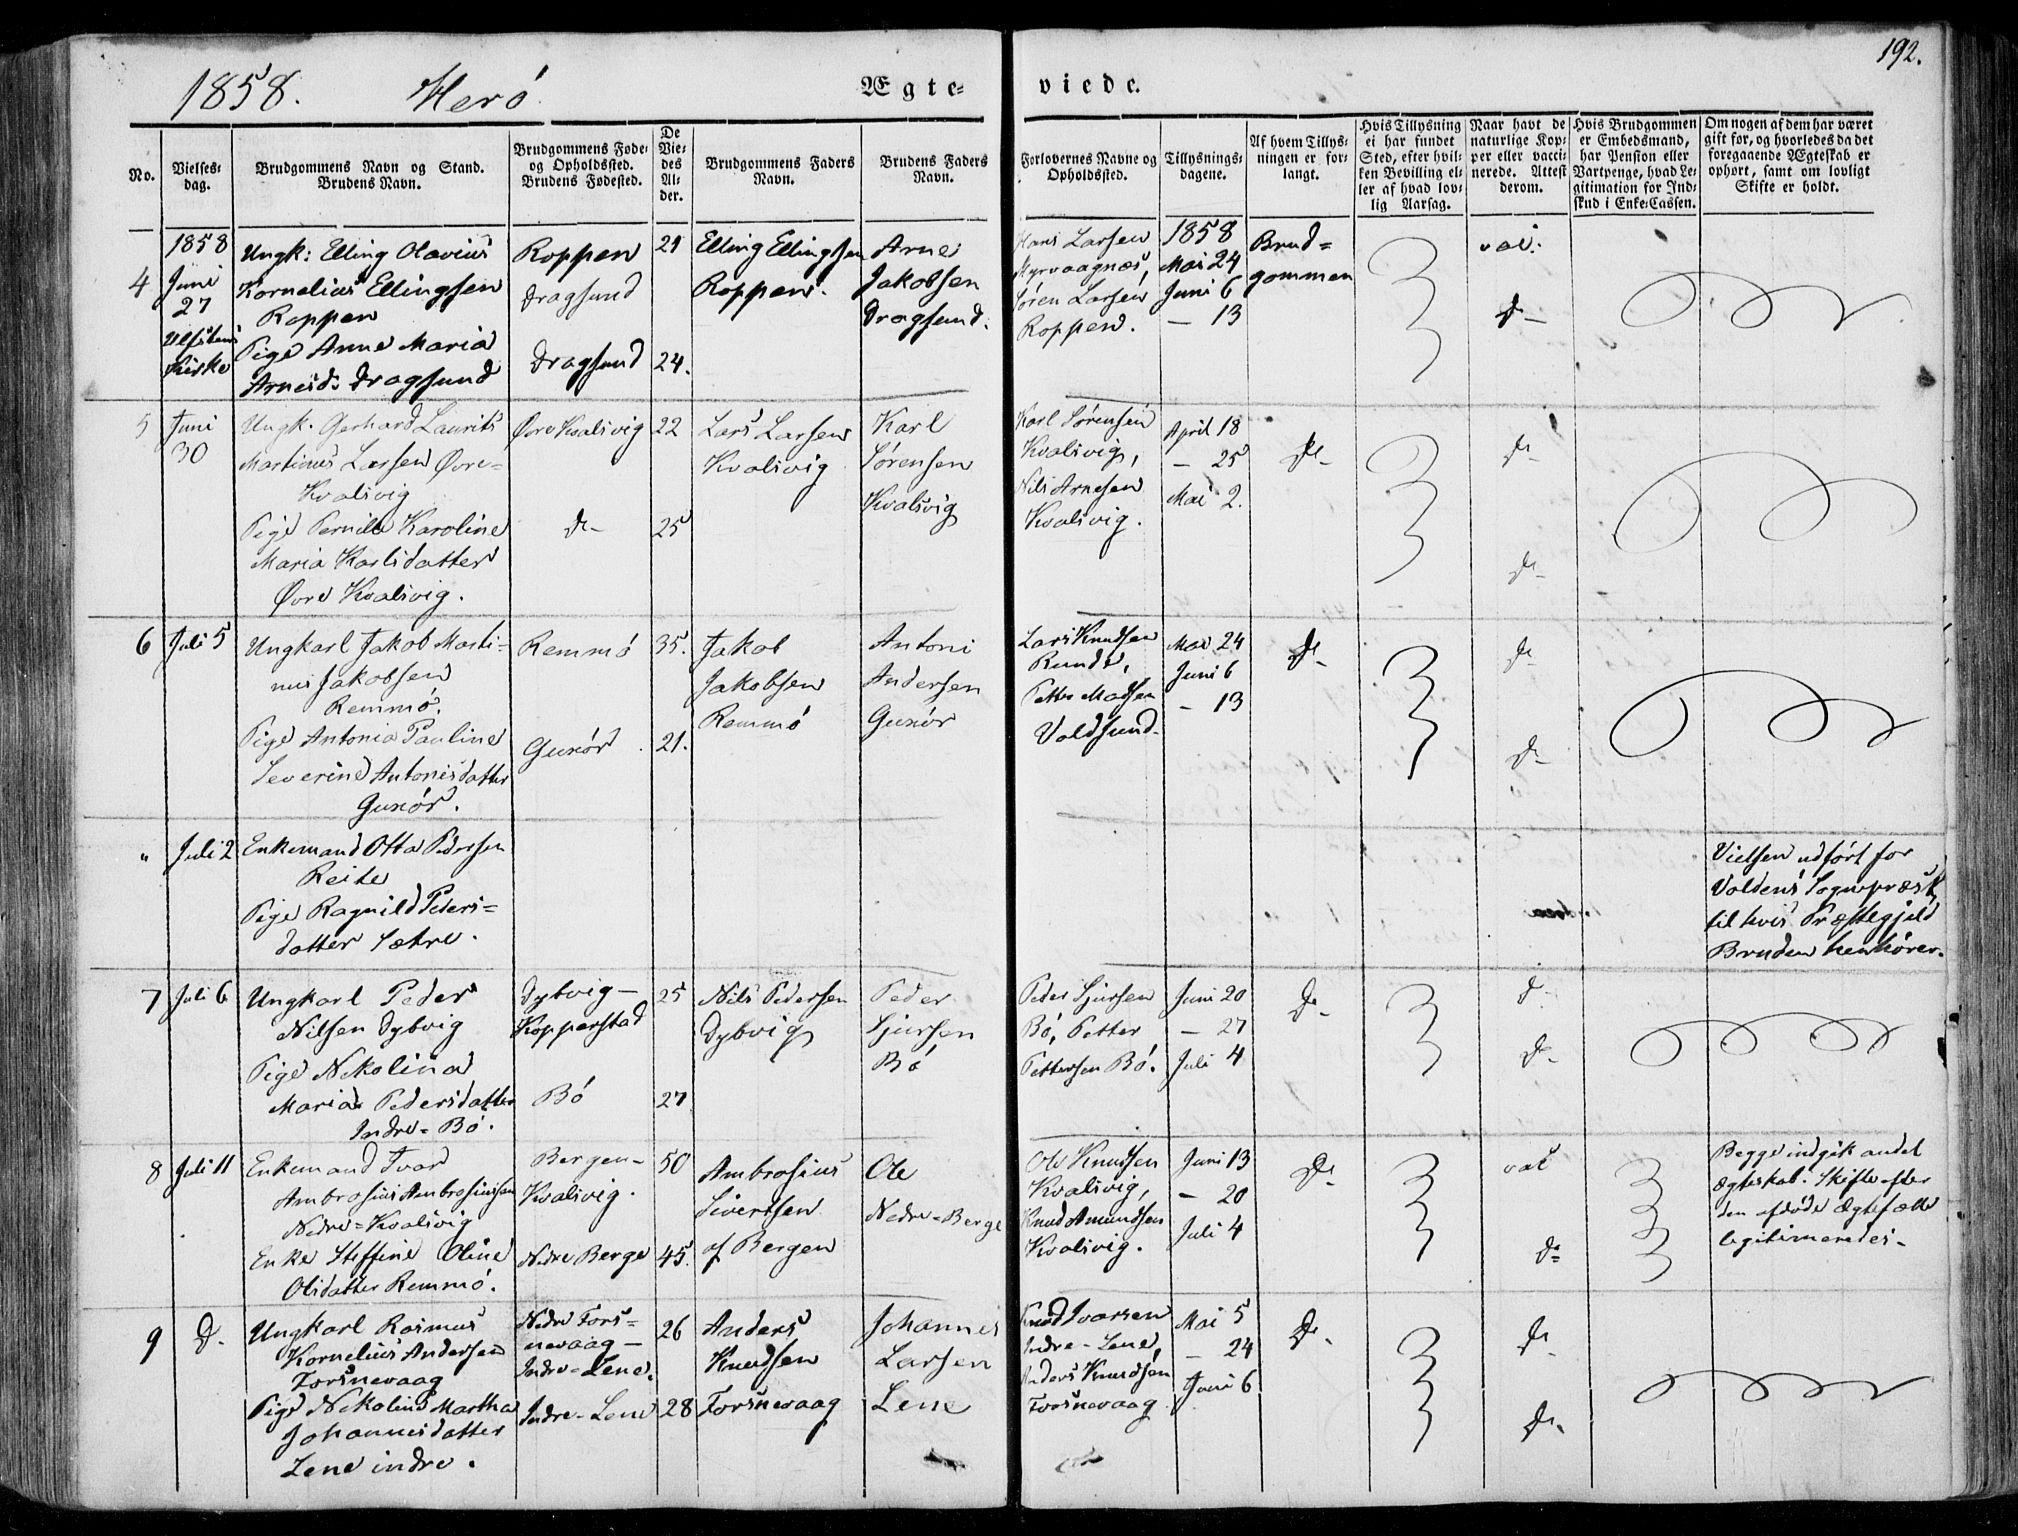 192.
1858. Herö Ægte= viede.
No.
Vielses=
dag.
Brudgommens Navn og Stand.
Brudens Navn.
Brudgommens Føde=
og Opholdssted.
Brudens Fødested.
De
Vie=
des
Al=
der.
Brudgommens Faders
Navn.
Brudens Faders
Navn.
Forlovernes Navne og
Opholdssted.
Tillysnings=
dagene.
Af hvem Tillys=
ningen er for=
langt.
Hvis Tillysning
ei har fundet
Sted, efter hvil=
ken Bevilling el=
ler af hvad lov=
lig Aarsag.
Naar havt de
naturlige Kop=
per eller vacci=
nerede. Attest
derom.
Hvis Brudgommen
er Embedsmand,
har Pension eller
Vartpenge, hvad Le=
gitimation for Ind=
skud i Enke=Cassen.
Om nogen af dem har været
gift før, og hvorledes da det
foregaaende Ægteskab er
ophørt, samt om lovligt
Skifte er holdt.
4
1858
Juni
27
Ulfstens
Kirke
Ungk: Elling Olavius
Kornelius Ellingsen
Roppen
Pige Anne Maria
Arnesd. Dragsund
Roppen
Dragsund
Dragsund
21
24.
Elling Ellingsen
Roppen.
Arne
Jakobsen
Dragsund.
Hans Larsen
Myrvaagnæs,
Søren Larsen
Roppen.
1858
Mai 24
Juni 6
— 13
Brud=
gommen
vac.
D—
5
Juni
30
Ungk. Gerhard Laurits
Martinus Larsen Øvre=
Kvalsvig
Pige Pernille Karoline
Maria Karlsdatter
Øvre Kvalsvig.
Øvre Kvalsvig
D—
22
25
Lars Larsen
Kvalsvig
Karl
Sørensen
Kvalsvig
Karl Sørensen
Kvalsvig,
Nils Arnesen
Kvalsvig.
April 18
— 25
Mai 2.
D—
D—
D—
6
Juli 5
Ungkarl Jakob Marti=
nus Jakobsen
Remmö.
Pige Antonia Pauline
Severine Antonisdatter
Gurör.
Remmö
Gurör
35.
21.
Jakob
Jakobsen
Remmö
Antoni
Andersen
Gurör
Lars Knudsen
Runde,
Petter Madsen
Voldsund.
Mai 24
Juni 6
— 13
D—
D—
D—
"
Juli 2
Enkemand Otta Pedersen
Reite
Pige Ragnild Peders=
datter Sætre.
Vielsen udført for
Voldens Sognepræst,
til hvis Præstegjeld
Bruden henhører.
7
Juli 6
Ungkarl Peder
Nilsen Dybvig
Pige Nikolina
Maria Pedersdatter
Indre=Bö.
Dybvig—
Kopperstad
Bö
25
27
Nils Pedersen
Dybvig
Peder
Sjursen
Bö
Peder Sjursen
Bö, Petter
Pettersen Bö.
Juni 20
— 27
Juli 4
D—
D—
D—
8
Juli 11
Enkemand Ivar
Ambrosius Ambrosiussen
Nedre=Kvalsvig
Enke Steffine Oline
Olsdatter Remmö.
Bergen—
Kvalsvig.
Nedre Berge
50
45.
Ambrosius
Sivertsen
af Bergen
Ole
Nedre=Berge
Ole Knudsen
Kvalsvig,
Knud Amundsen
Kvalsvig.
Juni 13
— 20
Juli 4
D—
vac
D=
Begge indgik andet
Ægteskab. Skifte efter
den afdøde Ægtefælle
legitimeredes—
9
D.
Ungkarl Rasmus
Kornelius Andersen
Torsnevaag
Pige Nikoline Martha
Johannesdatter
Lene indre.
Nedre Tors=
nevaag—
Indre=Lene.
Indre=Lene
26
28
Anders
Knudsen
Torsnevaag
Johannes
Larsen
Lene
Knud Ivarsen
Indre=Lene,
Anders Knudsen
Torsnevaag
Mai 5
— 24
Juni 6
D.
D—
D.